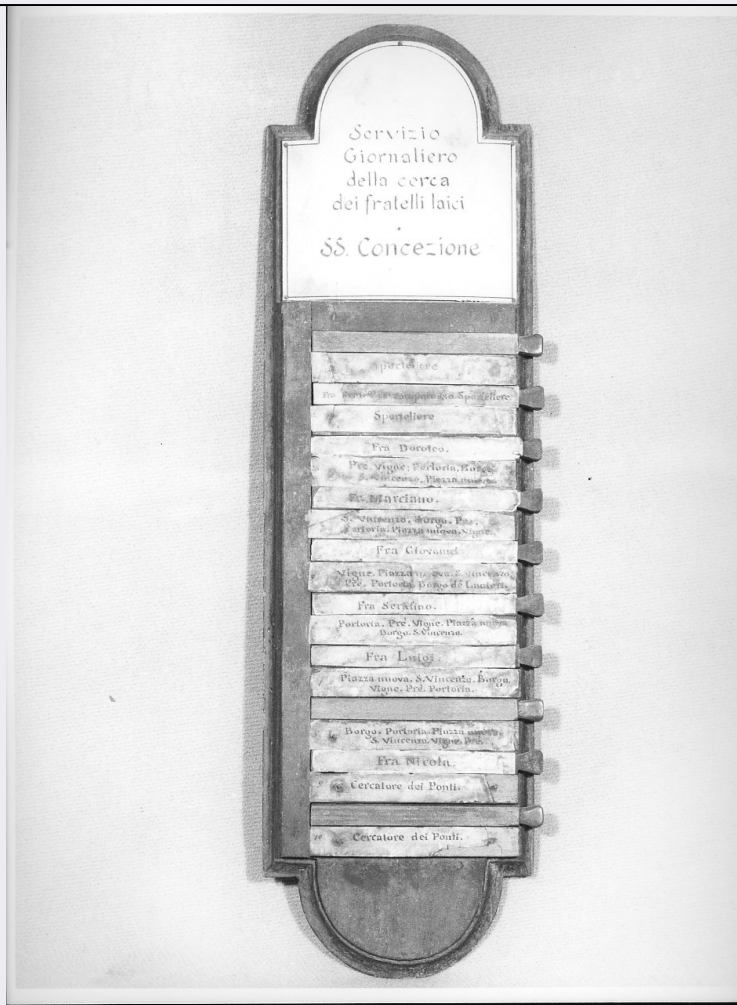 Servizio
Giornaliero
della cerca
dei fratelli laici
SS. Concezione
Sporteliere
Fra Sporteliere
Sporteliere
Fra Doroteo.
Prè. Vigne. Portoria. Borgo
S. Vincenzo. Piazza nuova.
Fra Marciano.
S. Vincenzo. Borgo. Prè.
Portoria. Piazza nuova. Vigne.
Fra Giovanni
Vigne. Piazza nuova. S. Vincenzo
Prè. Portoria. Borgo de Lanieri.
Fra Serafino.
Portoria. Prè. Vigne. Piazza nuova
Borgo. S. Vincenzo.
Fra Luigi.
Piazza nuova. S. Vincenzo. Borgo
Vigne. Prè. Portoria.
Borgo. Portoria. Piazza nuova.
S. Vincenzo. Vigne. Prè.
Fra Nicola
Cercatore dei Ponti.
Cercatore dei Ponti.